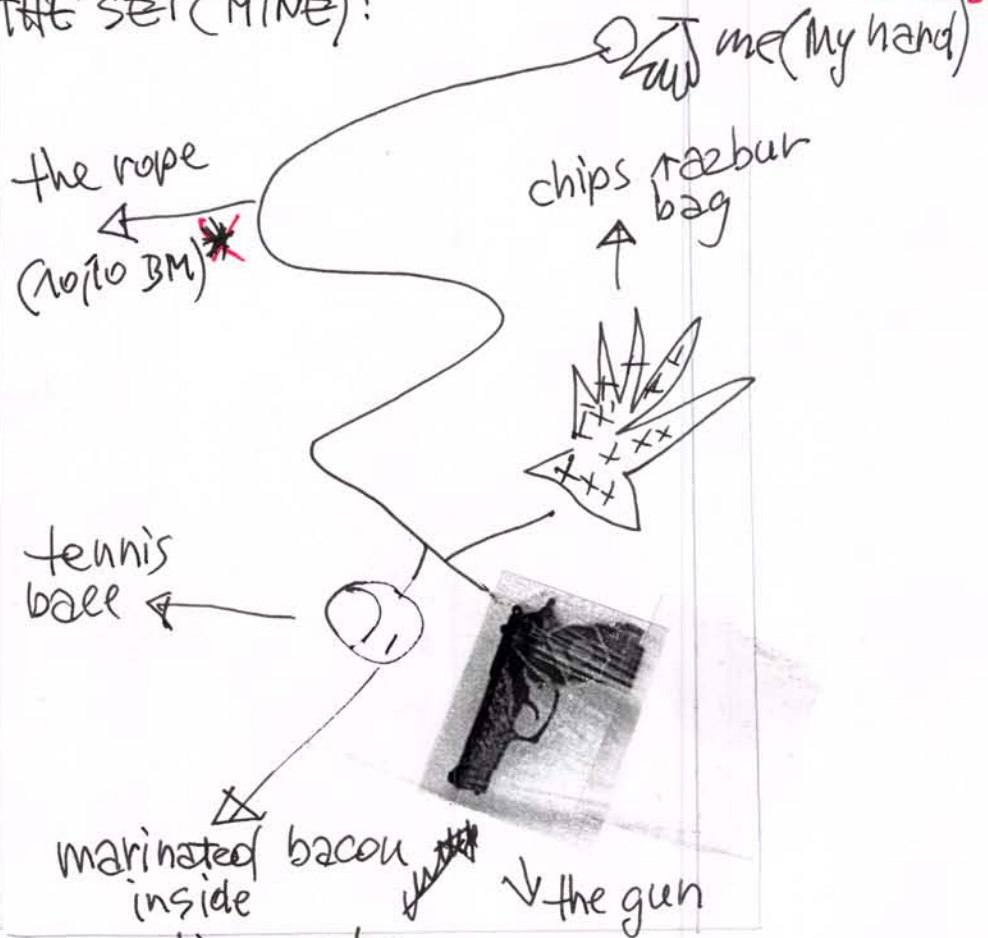 THE SET (MINE):
me (My hand)
the rope
chips razbur
bag
(10,10 BM)
tennis
ball
marinated bacon
inside
the gun